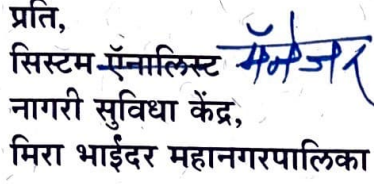 प्रति,
सिस्टम ऍनालिस्ट मॅनेजर
नागरी सुविधा केंद्र,
मिरा भाईंदर महानगरपालिका